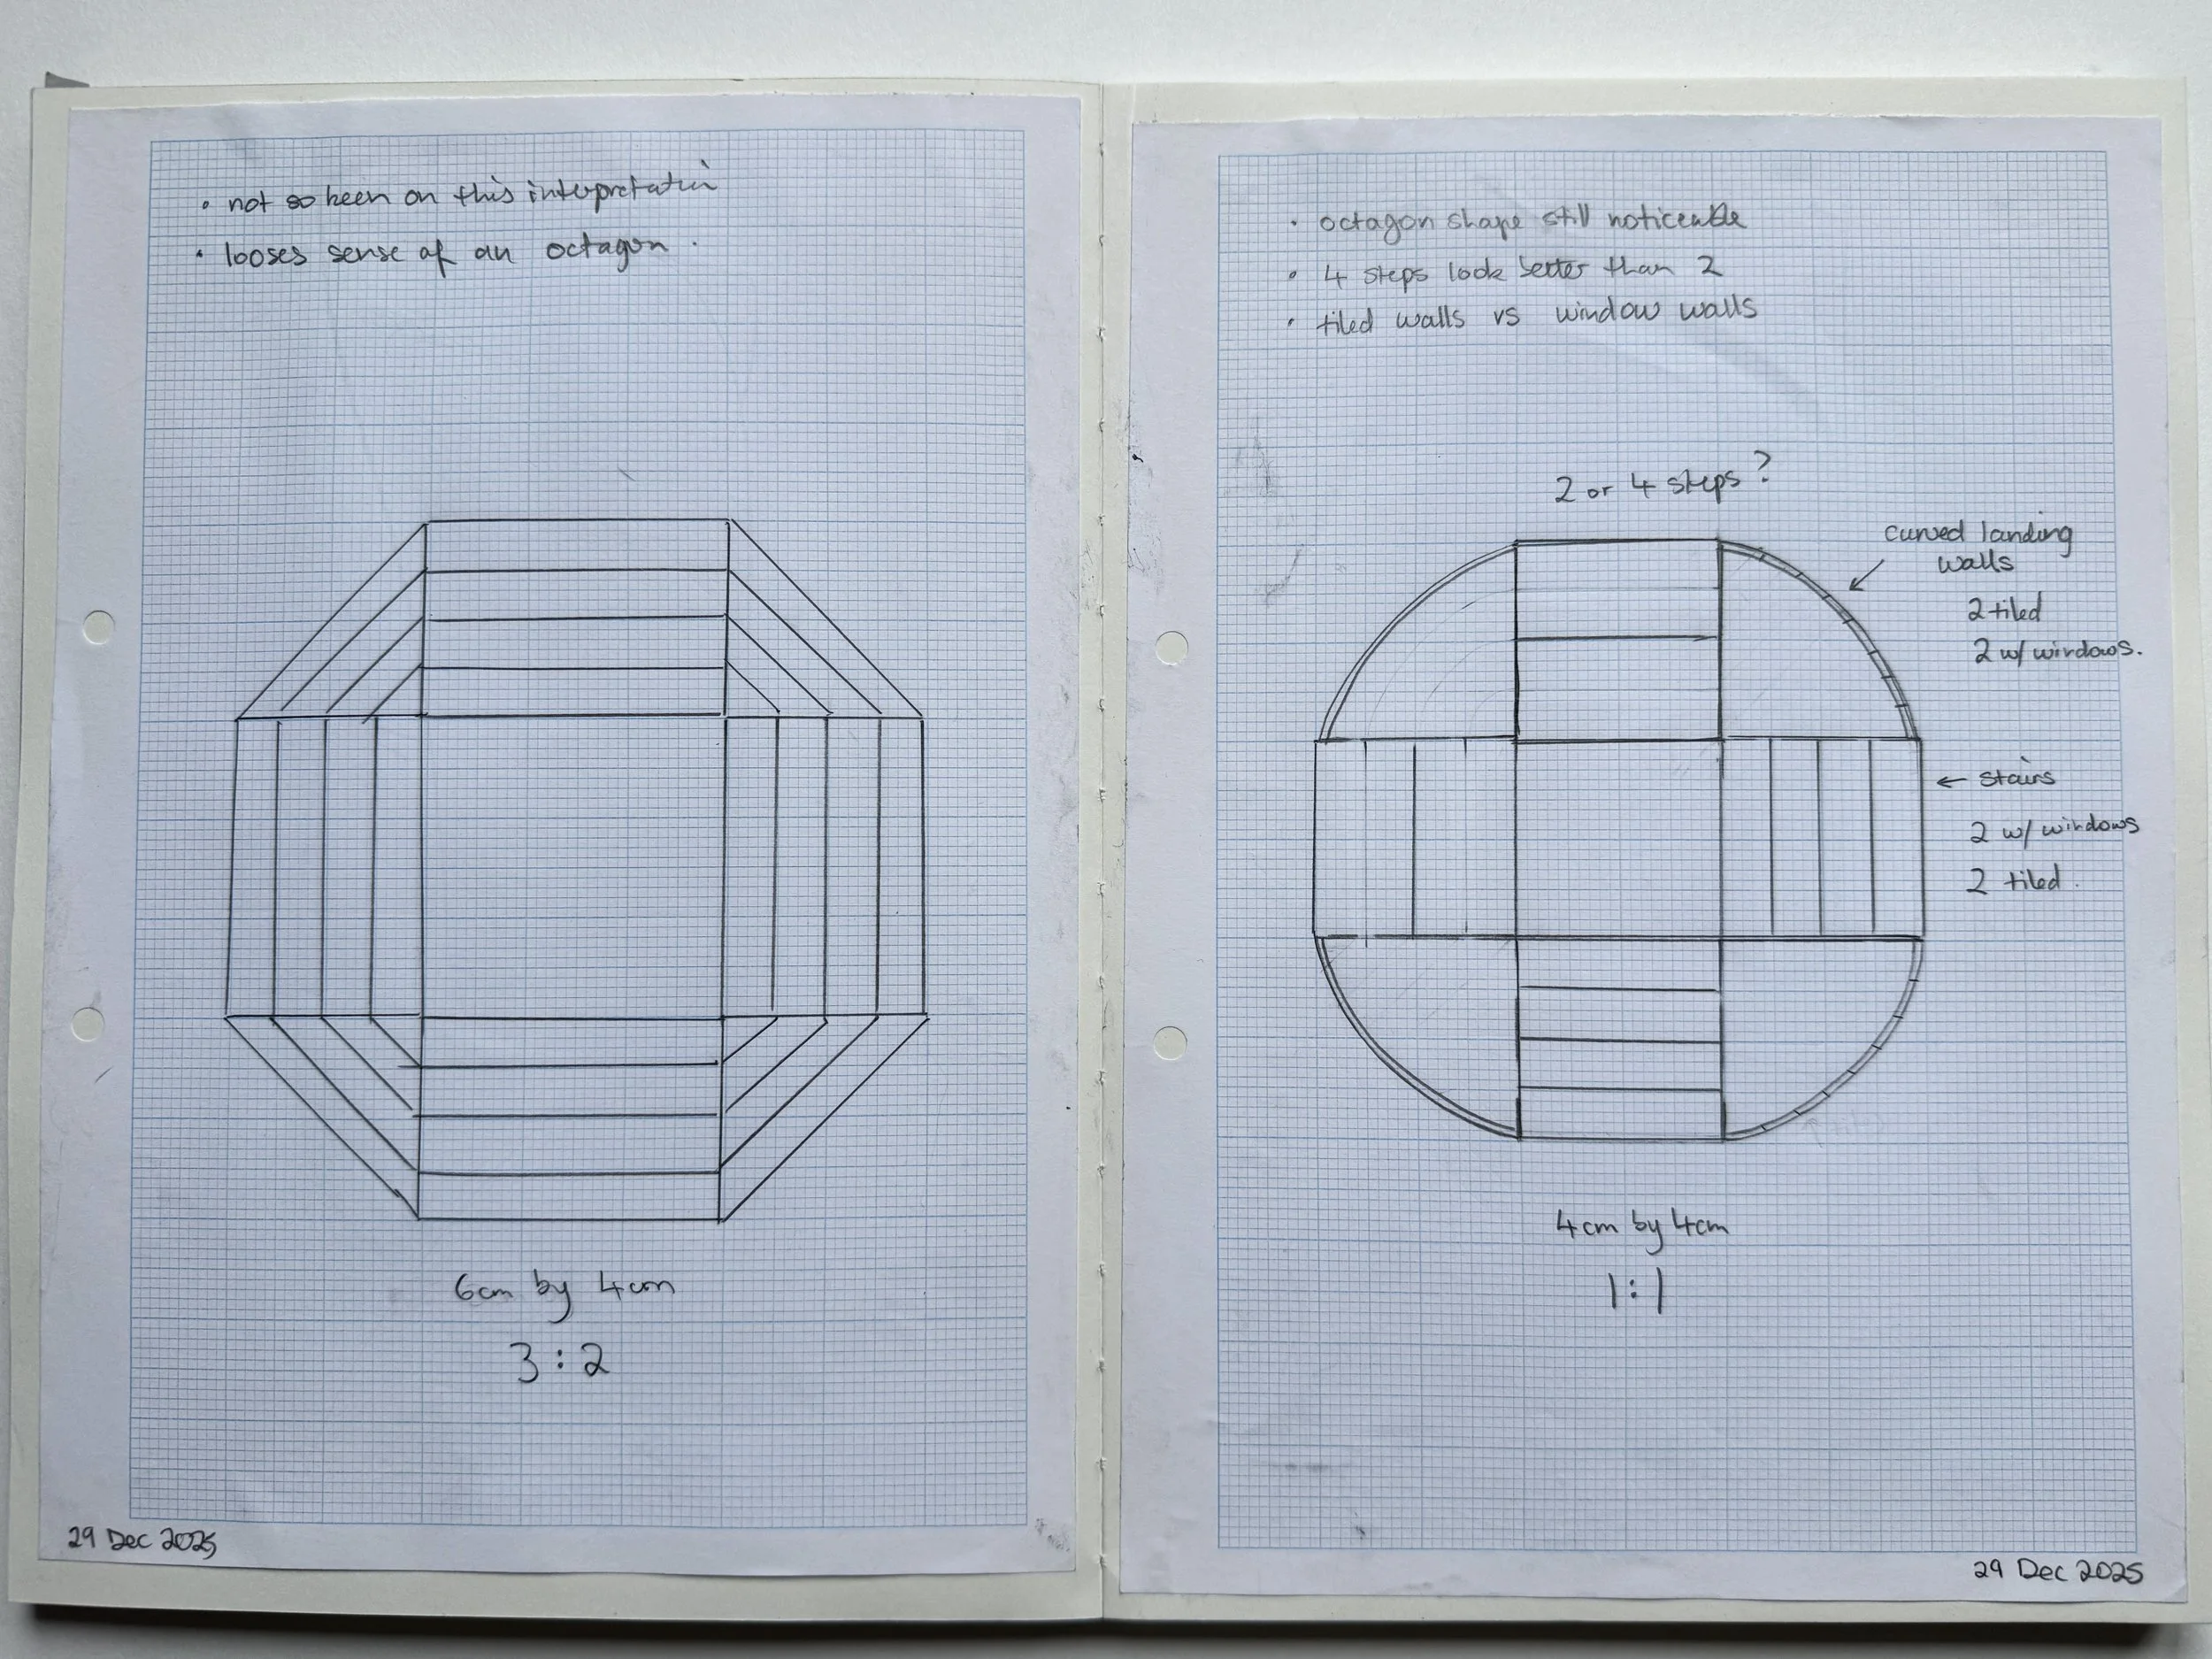 • not so keen on this interpretation
• looses sense of an octagon.
6cm by 4cm
3:2
29 Dec 2025
• octagon shape still noticeable
• 4 steps look better than 2
• tiled walls vs window walls
2 or 4 steps?
curved landing
walls
2 tiled
2 w/ windows.
← stairs
2 w/ windows
2 tiled.
4cm by 4cm
1:1
29 Dec 2025